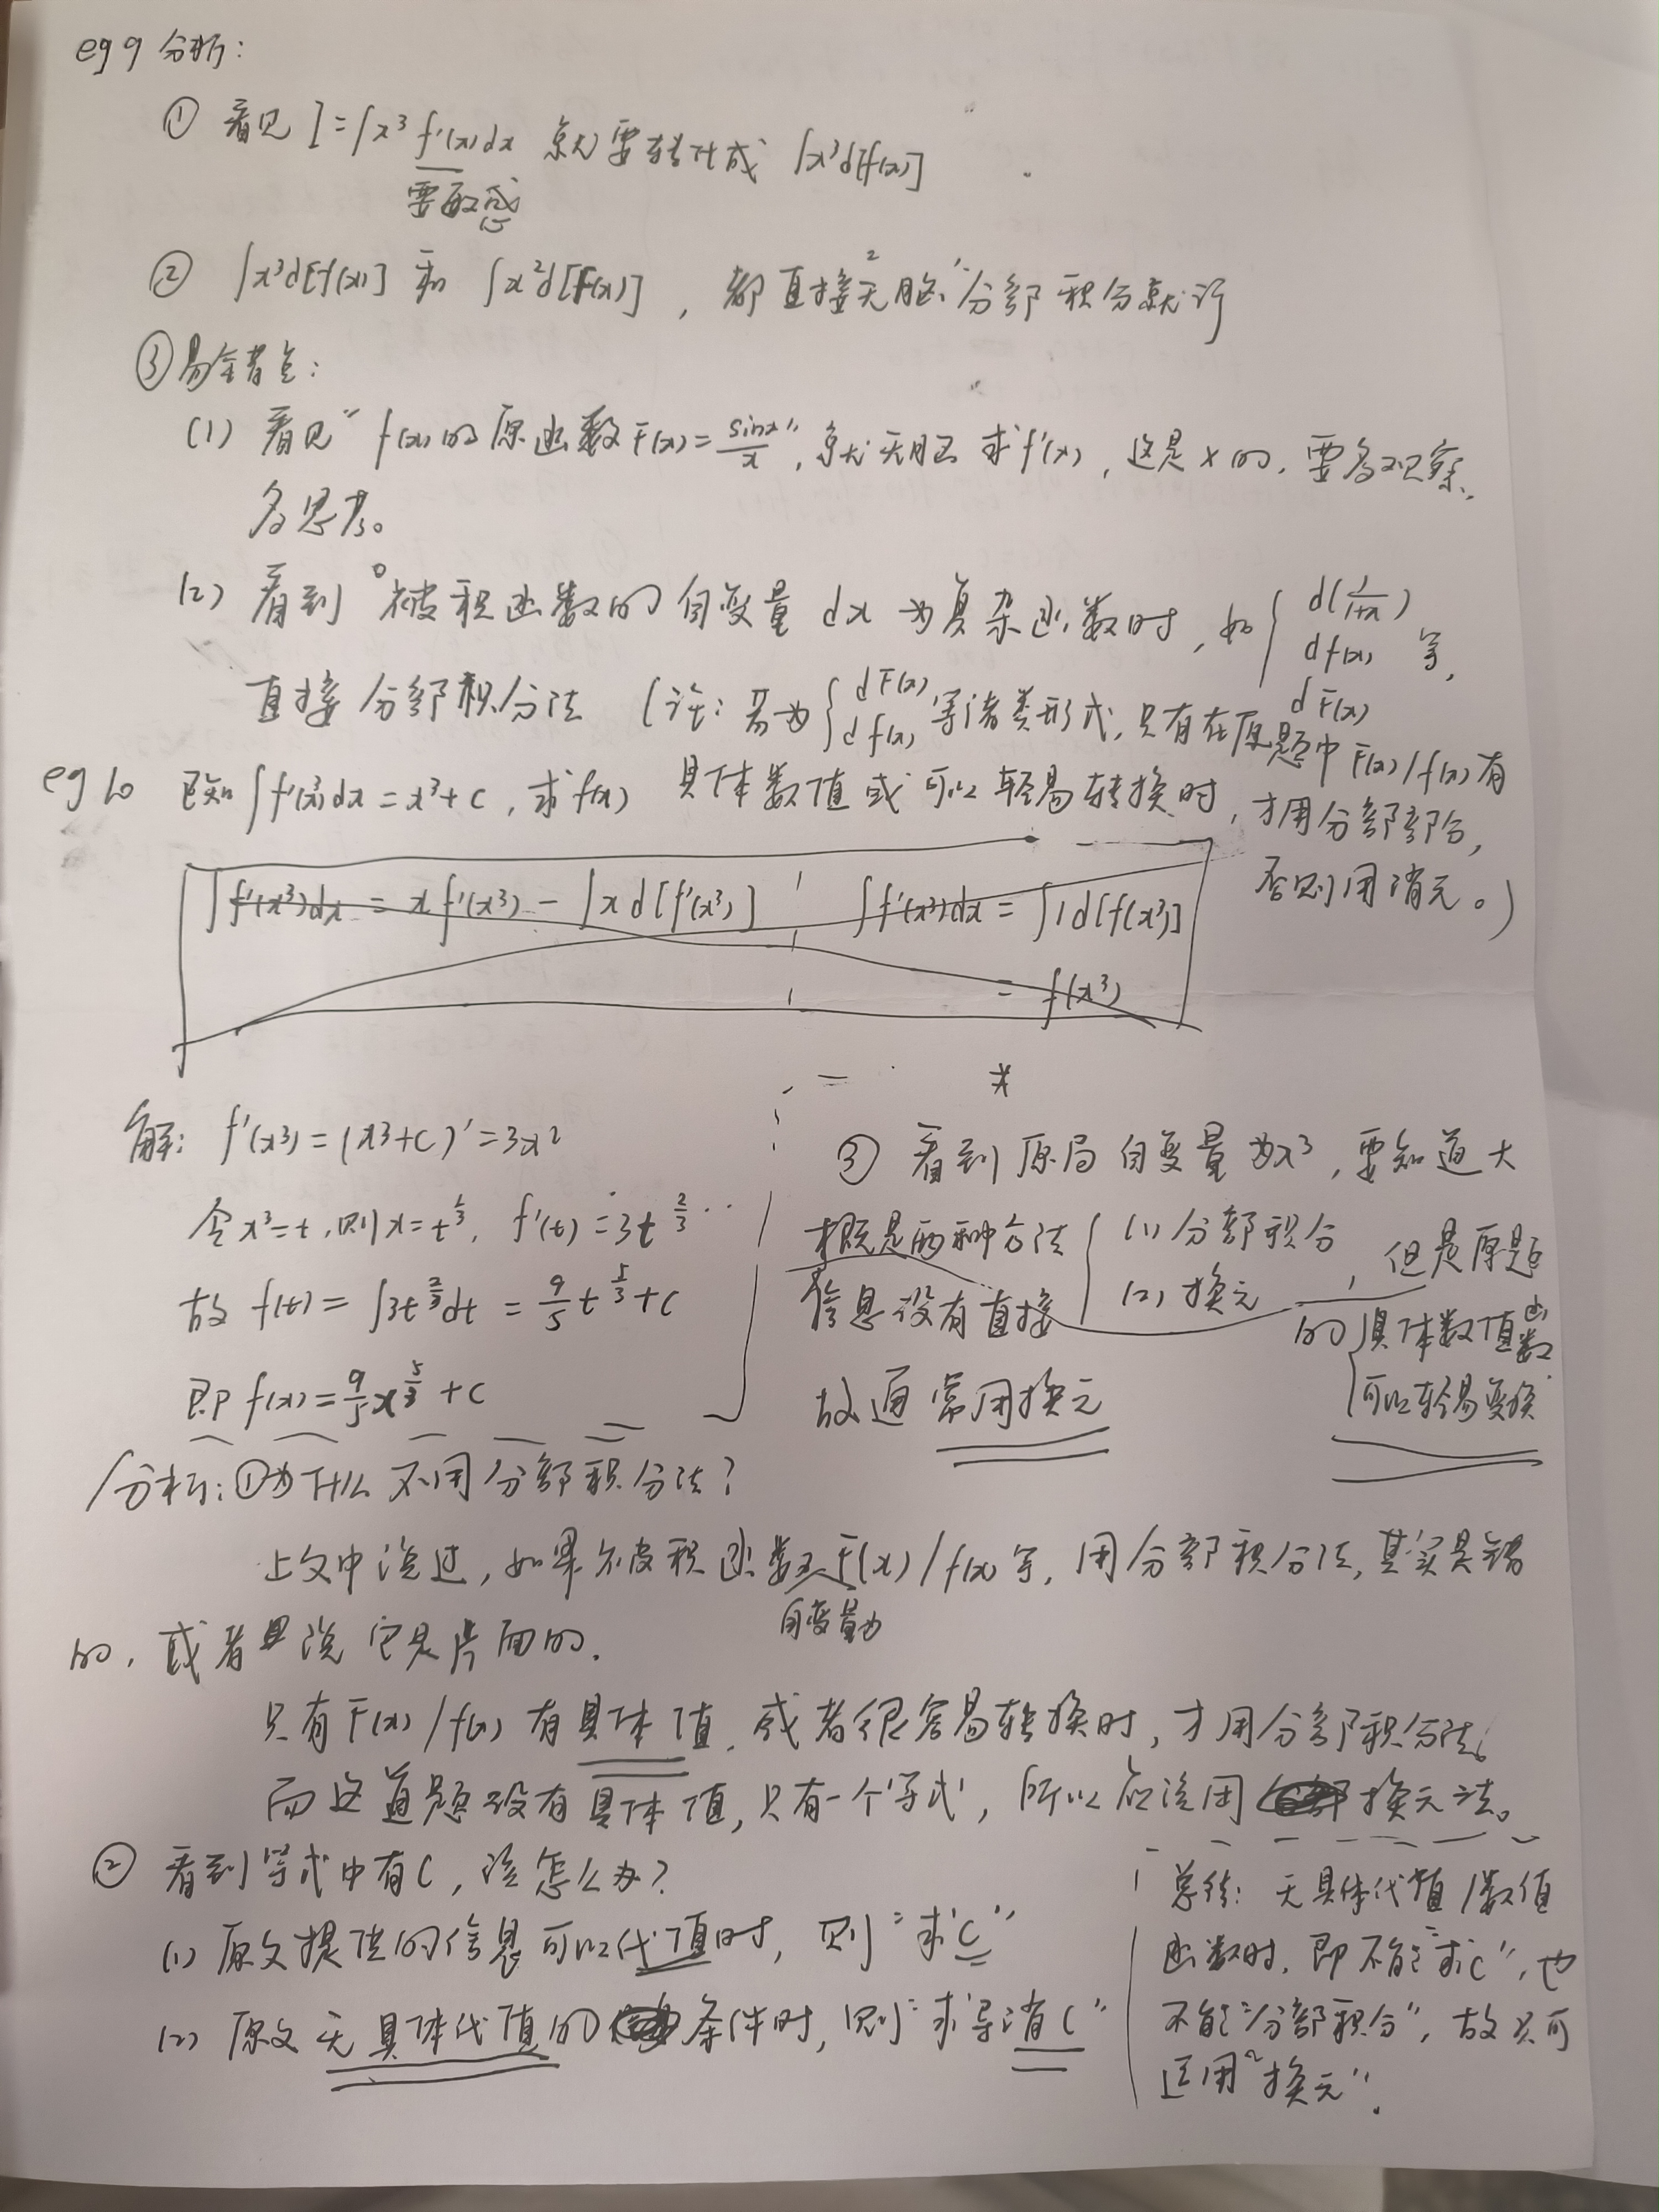 eg 9 分析：
① 看见 I=∫x³ f'(x)dx 就要转化成 ∫x³d[f(x)]
要敏感
② ∫x³d[f(x)] 和 ∫x²d[F(x)]，都直接“无脑”分部积分就行
③ 易错点：
(1) 看见“f(x)的原函数F(x)=sinx/x”，就无脑求f'(x)，这是×的，要多观察、
多思考。
(2) 看到“被积函数的自变量dx为复杂函数时，如{d(1/(1+x)) df(x) dF(x) 等，
直接分部积分法（注：若为{dF(x) df(x) 等诸类形式，只有在原题中F(x)/f(x)有
具体数值或可以轻易转换时，才用分部部分，
否则用消元。）
eg 10 已知∫f'(x³)dx=x³+C，求f(x)
∫f'(x³)dx = xf'(x³) - ∫x d[f'(x³)]
∫f'(x³)dx = ∫1d[f(x³)]
= f(x³)
解：f'(x³)=(x³+C)'=3x²
令x³=t，则x=t^{1/3}，f'(t)=3t^{2/3}
故 f(t)=∫3t^{2/3}dt=9/5 t^{5/3}+C
即 f(x)=9/5 x^{5/3}+C
*
③ 看到原局自变量为x³，要知道大
概是两种方法{(1)分部积分 (2)换元，但是原题
信息没有直接的{具体数值函数 可以轻易变换
故通常用换元
分析：①为什么不用分部积分法？
上文中说过，如果被积函数自变量为F(x)/f(x)等，用分部积分法，其实是错
的，或者说它是片面的.
只有F(x)/f(x)有具体值，或者很容易转换时，才用分部积分法。
而这道题没有具体值，只有一个等式，所以应该用换元法。
② 看到等式中有C，该怎么办？
(1) 原文提供的信息可以代值时，则“求C”
(2) 原文无具体代值的条件时，则“求导消C”
总结：无具体代值/数值
函数时，即不能“求C”，也
不能“分部积分”，故只可
运用“换元”.